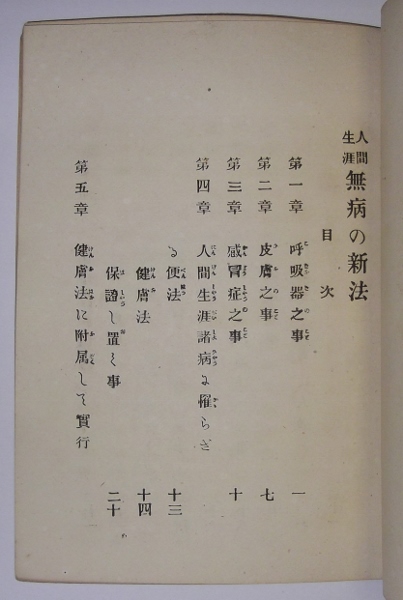 人間生涯無病の新法
目次
第一章 呼吸器之事 一
第二章 皮膚之事 七
第三章 感冒症之事 十
第四章 人間生涯諸病に罹らざ
る便法 十三
健膚法 十四
保證し置く事 二十
第五章 健膚法に附属して實行